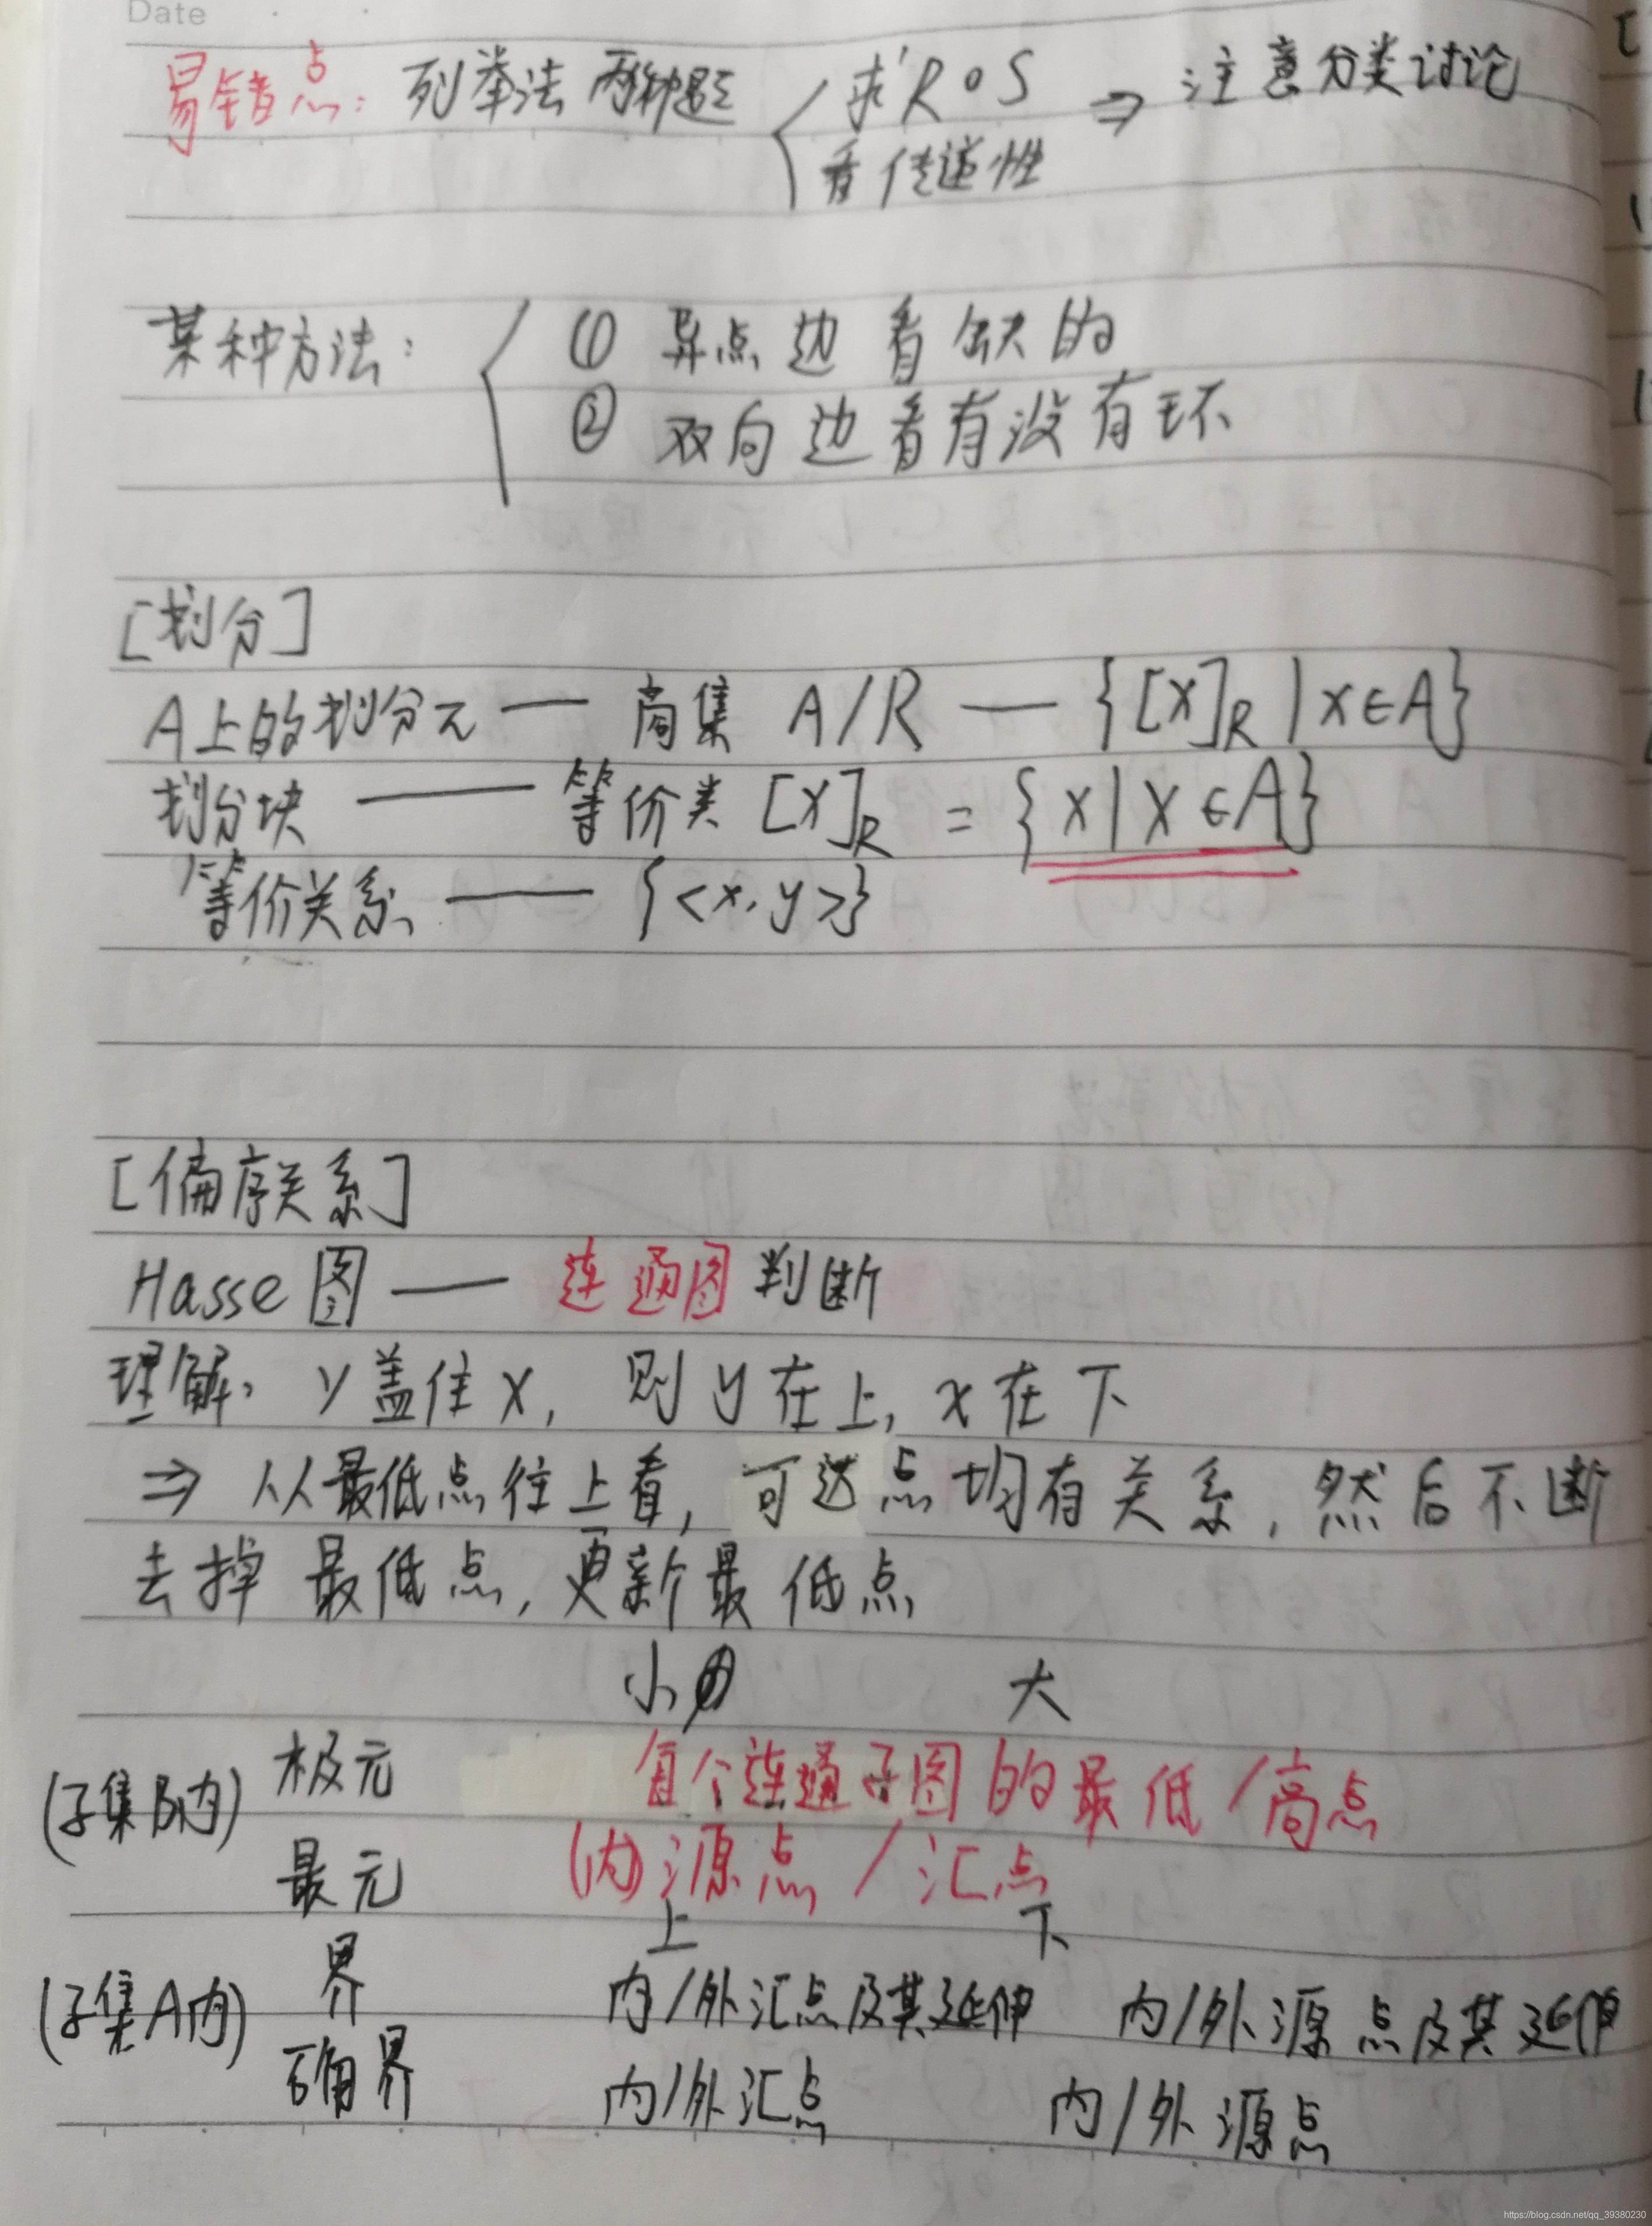 Date
易错点: 列举法 两种题 求R∘S ⇒ 注意分类讨论
看传递性
某种方法: ① 异点边看缺的
② 双向边看有没有环
[划分]
A上的划分π — 商集 A/R — {[x]R | x∈A}
划分块 — 等价类 [x]R = {x | x∈A}
等价关系 — {<x,y>}
[偏序关系]
Hasse图 — 连通图判断
理解, y盖住x, 则y在上, x在下
⇒ 从最低点往上看, 可达点均有关系, 然后不断
去掉最低点, 更新最低点
小 大
(子集B内) 极元 每个连通子图的最低/高点
最元 (内)源点 / 汇点
上 下
(子集A内) 界 内/外汇点及其延伸 内/外源点及其延伸
确界 内/外汇点 内/外源点
https://blog.csdn.net/qq_39380230